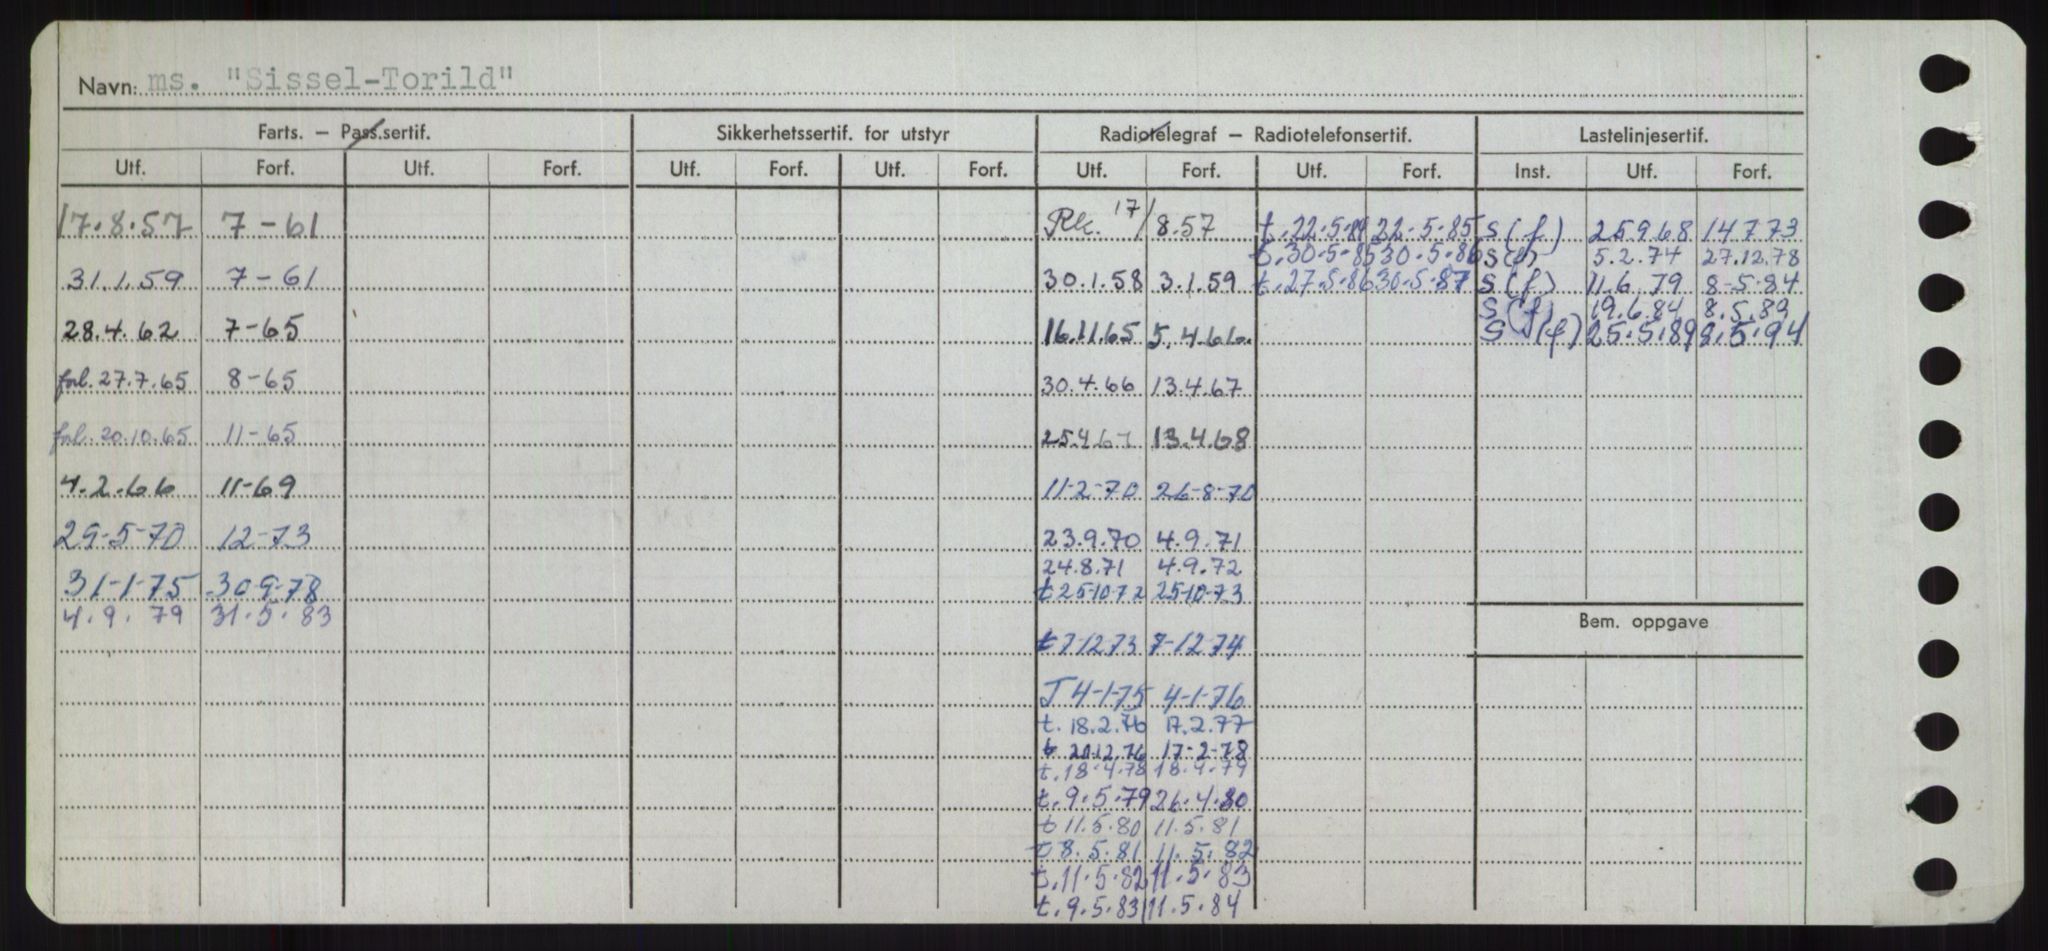 Navn: ms. "Sissel-Torild"
Farts. – Pass.sertif. Sikkerhetssertif. for utstyr Radiotelegraf – Radiotelefonsertif. Lastelinjesertif.
Utf. Forf. Utf. Forf. Utf. Forf. Utf. Forf. Utf. Forf. Utf. Forf. Inst. Utf. Forf.
17.8.57 7-61 Rk. 17/8.57 t. 22.5.84 22.5.85 S(f) 25.9.68 14.7.73
t. 30.5.85 30.5.86 S(f) 5.2.74 27.12.78
31.1.59 7-61 30.1.58 3.1.59 t. 27.5.86 30.5.87 S(f) 11.6.79 8-5-84
S(f) 19.6.84 8.5.83
28.4.62 7-65 16.11.65 5.4.66. S (f) 25.5.89 8.5.94
forl. 27.7.65 8-65 30.4.66 13.4.67
forl. 20.10.65 11-65 25.4.67 13.4.68
4.2.66 11-69 11-2-70 26-8-70
29-5-70 12-73 23.9.70 4.9.71
24.8.71 4.9.72
31-1-75 30-9-78 t 25-10-72 25-10-73
4.9.79 31.5.83
Bem. oppgave
t 7-12-73 7-12-74
T 4-1-75 4-1-76
t. 18.2.76 17.2.77
t 20.12.76 17-2-78
t. 18.4.78 18.4.79
t. 9.5.79 26.4.80
t 11.5.80 11.5.81
t 8.5.81 11.5.82
t. 11.5.82 11.5.83
t. 9.5.83 11.5.84